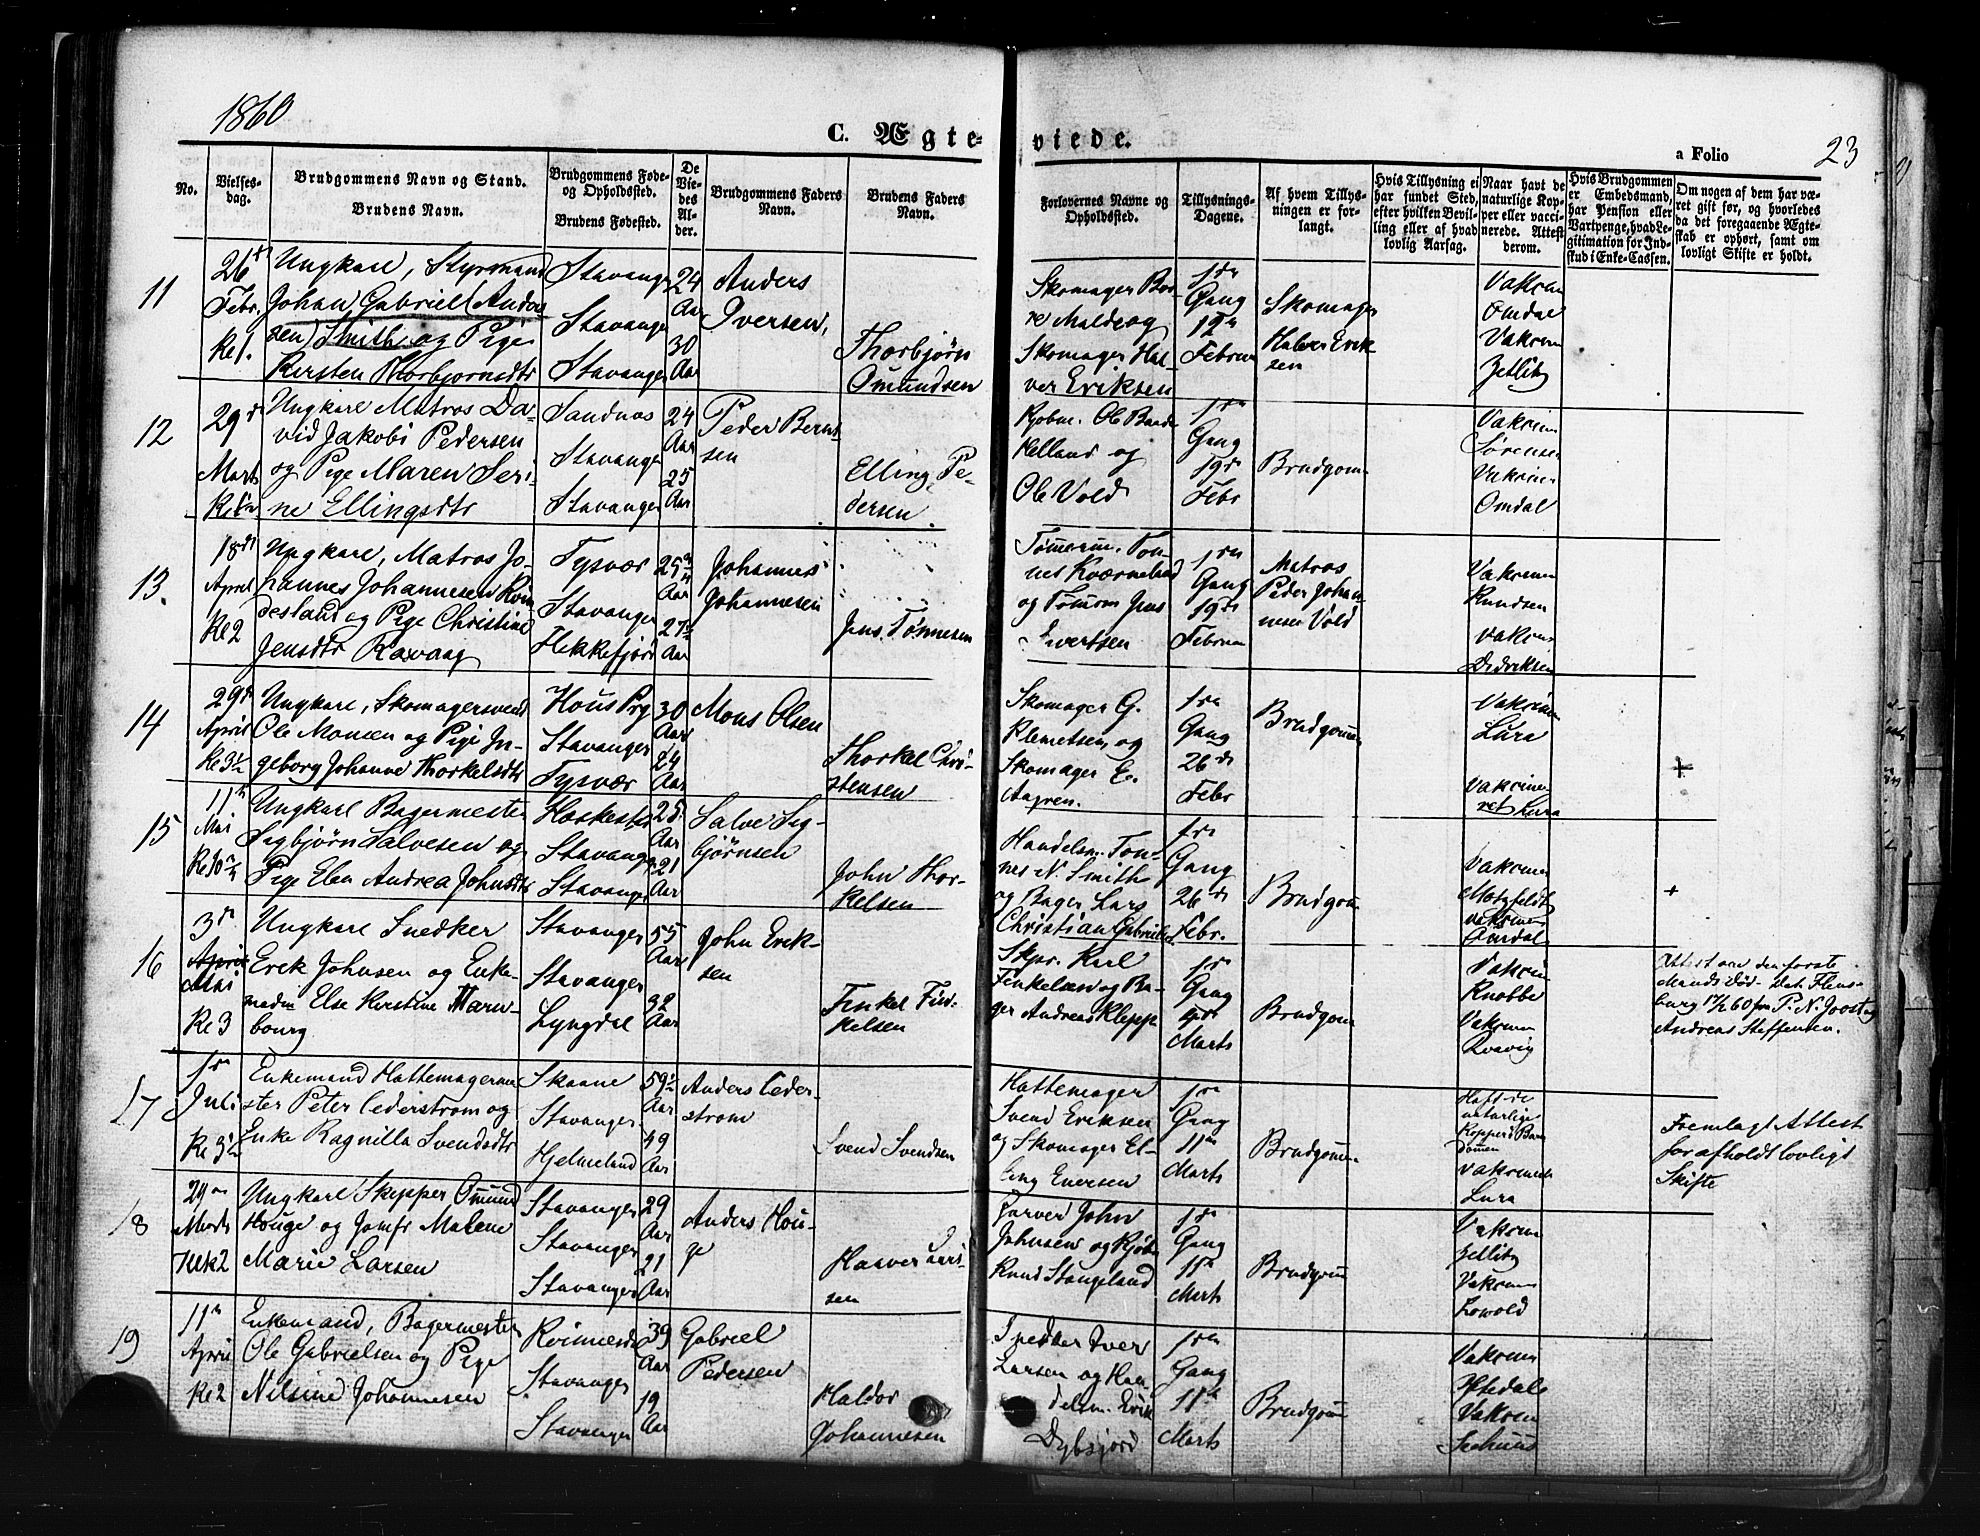 1860
C. Ægte-
viede.
a Folio
23
No.
Vielses-
dag.
Brudgommens Navn og Stand.
Brudens Navn.
Brudgommens Føde-
og Opholdssted.
Brudens Fødested.
De
Vie-
des
Al-
der.
Brudgommens Faders
Navn.
Brudens Faders
Navn.
Forlovernes Navne og
Opholdssted.
Tillysnings-
Dagene.
Af hvem Tillys-
ningen er for-
langt.
Hvis Tillysning ei
har fundet Sted,
efter hvilken Bevil-
ling eller af hvad
lovlig Aarsag.
Naar havt de
naturlige Kop-
per eller vacci-
nerede. Attest
derom.
Hvis Brudgommen
er Embedsmand,
har Pension eller
Vartpenge, hvad Le-
gitimation for Ind-
skud i Enke-Cassen.
Om nogen af dem har væ-
ret gift før, og hvorledes
da det foregaaende Ægte-
skab er ophørt, samt om
lovligt Skifte er holdt.
11
26de
Febr.
Kl 1.
Ungkarl, Styrmand
Johan Gabriel (Ander
sen) Smith og Pige
Kirsten Thorbjornsdtr
Stavanger
Stavanger
Stavanger
24
Aar
30
Aar
Anders
Iversen,
Thorbjörn
Omundsen
Skomager Bor-
re Malde og
Skomager Hal-
ver Eriksen
1ste
Gang
12te
Februar
Skomager
Halver Erik
sen
Vakcin
Omdal
Vakcin
Zetlitz
12
29de
Marts
Ungkarl Matros Da-
vid Jakobi Pedersen
og Pige Maren Seri-
ne Ellingsdtr
Sandnæs
Stavanger
Stavanger
24
Aar
25
Aar
Peder Bernt-
sen
Elling Pe-
dersen
Kjøbm. Ole Barde
Kelland og
Ole Vold
1ste
Gang
19de
Febr
Brudgom
Vakcin
Sørensen
Vakcin
Omdal
13.
18de
April
Kl 2
Ungkarl, Matros Jo-
hannes Johannesen
og Pige Christine
Jensdtr Ravaag
Tysvær
Stavanger
Hekkefjord
25
Aar
27½
Aar
Johannes
Johannesen
Jens Tönnesen
Tømerm. Ton-
nes Kværneland
og Tømerm Jens
Sivertsen
1ste
Gang
19de
Februar
Matros
Peder Johan-
nesen Vold
Vakcine
Knudsen
Vakcin
Didriksen
14
29de
April
Kl 3½
Ungkarl, Skomagersvend
Ole Monsen og Pige In-
geborg Johanne Thorkelsdtr
Hous Prg
Stavanger
Tysvær
30
Aar
24
Aar
Mons Olsen
Thorkel Chri-
stensen
Skomager G.
Klemetsen og
Skomager E.
Aagren.
1ste
Gang
26de
Febr
Brudgommen
Vakcine
Lura
Vakcine
ret Lura
+
15
11te
Mai
Ungkarl Bagermester
Sigbjörn Salvesen og
Pige Elen Andrea Johnsdtr
Stavanger
Stavanger
25
Aar
21
Aar
Salve Sig-
bjørnsen
John Thor-
kelsen
Handelsm. Ton-
nes N. Smith
og Bager Lars
Christian Gabrielsen
1ste
Gang
26de
Febr.
Brudgom
Vakcine
Motzfeldt
Vakcine
Omdal
+
16
3de
April
Mai
Kl 3
Ungkarl Snedker
Erik Johnsen og Enke-
madm Else Kirstine Marn-
bourg
Stavanger
Stavanger
Lyngdal
55
Aar
32
Aar
John Erik-
sen
Finkel Fin-
kelsen
Skpr. Karl
Finkelsen og Ba-
ger Andreas Klepp
1ste
Gang
Marts
Brudgom
Vakcin
Knobbe
Vakcin
Attest om den første
Mands Død. Dat. Flens-
burg 17/2 60 fra P. N. Joost og
Andreas Steffensen.
17
1ste
Juli
Kl 3½
Enkemand Hattemagerme
ster Peter Cederstrom og
Enke Ragnilla Svendsdtr
Skaane
Stavanger
Hjelmeland
59½
Aar
49
Aar
Anders Ceder-
strom
Svend Svendsen
Hattemager
Svend Eriksen
og Skomager El-
ling Eversen
1ste
Gang
11te
Marts
Brudgommen
Haft de
naturlige
Kopper i Barn
dommen
Vakcineret
Lura
Fremlagt Attest
for afholdt lovligt
Skifte
18
29de
Marts
Kl 2
Ungkarl Skipper Omund
Houge og Jomfr Malene
Marie Larsen
Stavanger
Stavanger
Stavanger
29
Aar
21
Aar
Anders Hou-
ge
Haaver Lar-
sen
Farver John
Johnsen og Kjøb
Knud Stangeland
1ste
Gang
11te
Marts
Brudgom
Vakcin
Zetlitz
Vakcin
Lowold
19
11te
April
Kl 2
Enkemand, Bagermester
Ole Gabrielsen og Pige
Nilsine Johannesen
Kvinnesdal
Stavanger
Stavanger
39
Aar
19
Aar
Gabriel
Pedersen
Haldor
Johannesen
Snedker Iver
Larsen og Han
delsm. Erik
Dybsjord
1ste
Gang
11te
Marts
Brudgom
Vakcin
Vakcin